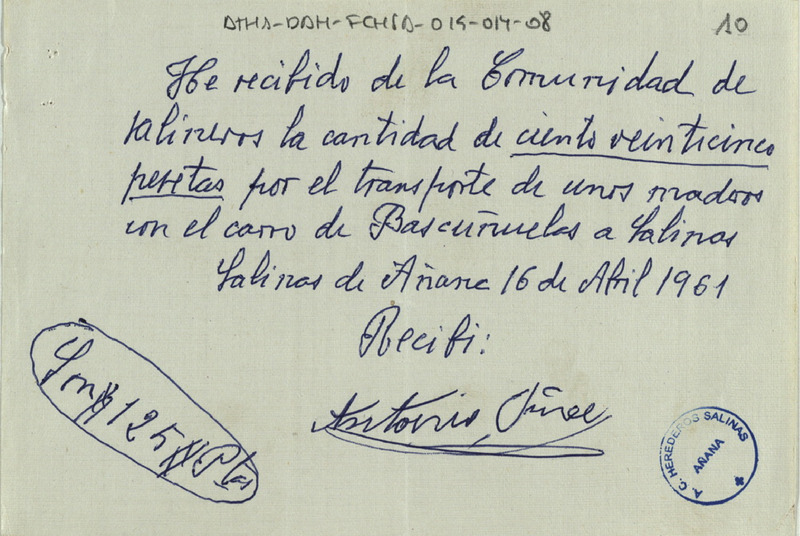 ATHA-DAH-FCHSA-019-014-08
10
He recibido de la Comunidad de
salineros la cantidad de ciento veinticinco
pesetas por el transporte de unos maderos
con el carro de Bascuñuelas a Salinas
Salinas de Añana 16 de Abril 1961
Recibi:
Son # 125 # Ptas
Antonio
A. C. HEREDEROS SALINAS
AÑANA